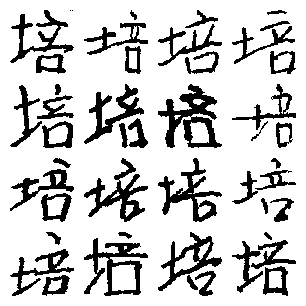 培培培培
培培培培
培培培培
培培培培